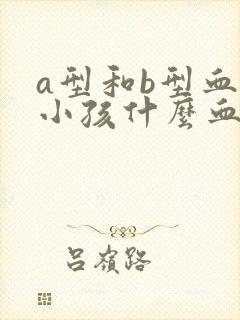 a型和b型血
小孩什麼血
吕嶺路